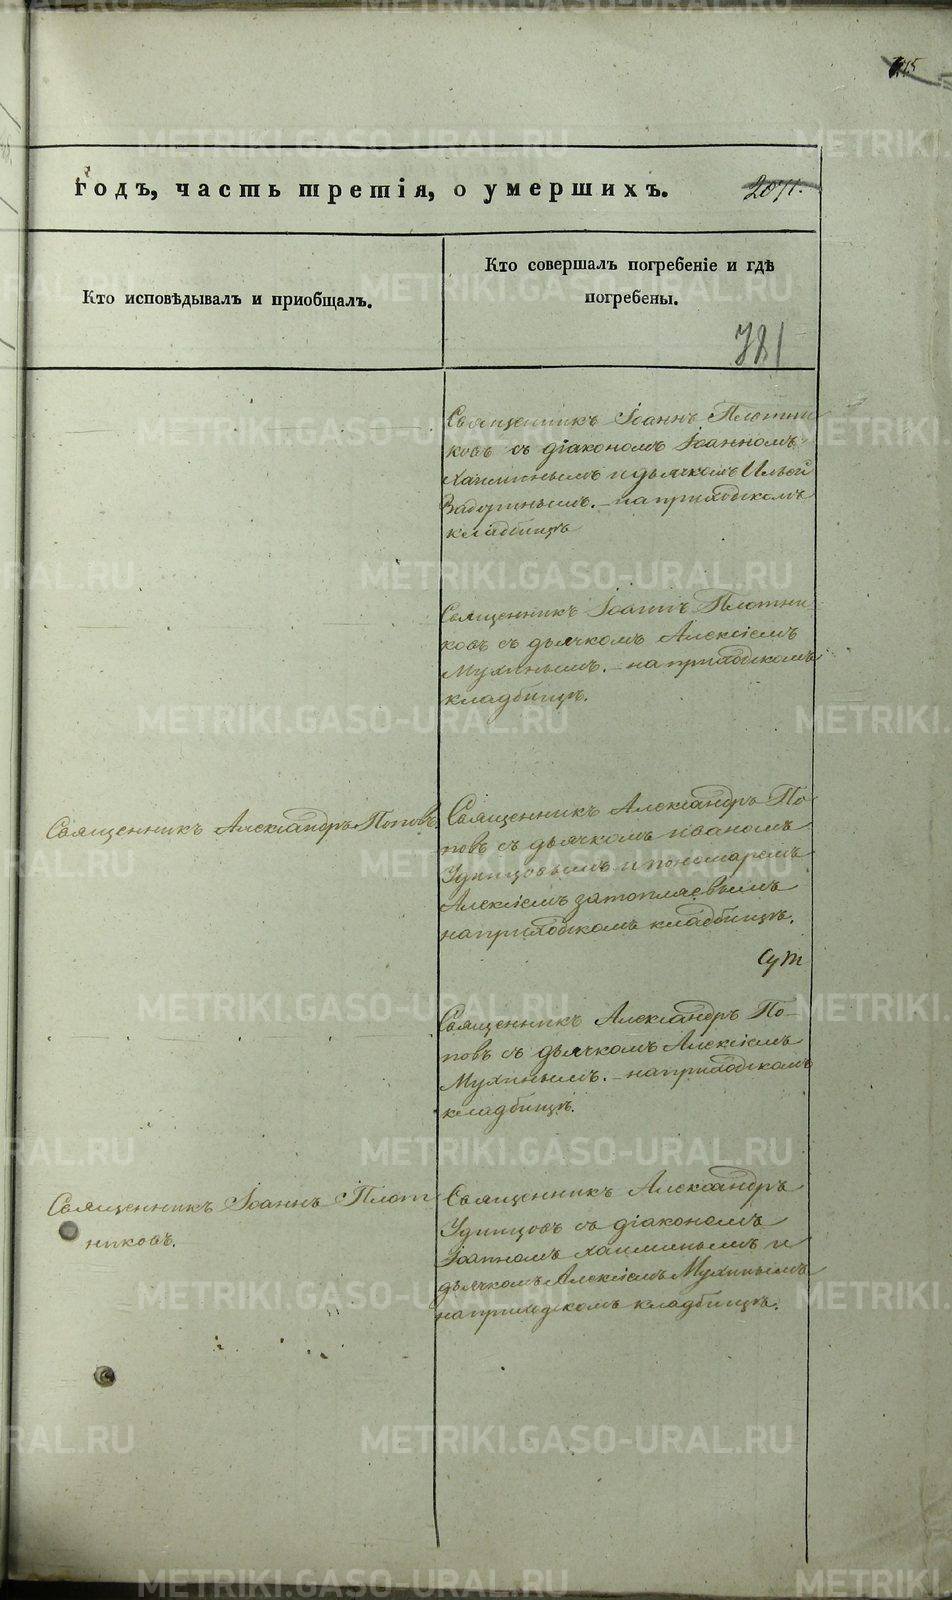 годъ, часть третія, о умершихъ.
2071.
Кто исповѣдывалъ и приобщалъ.
Кто совершалъ погребеніе и гдѣ
погребены.
781
Священникъ Іоаннъ Плотни
ковъ съ діакономъ Іоанномъ
Хаминнымъ и дьячкомъ Ильей
на приходскомъ
кладбищѣ
Священникъ Іоаннъ Плотни
ковъ съ дьячкомъ Алексіемъ
Мухинымъ. – на приходскомъ
кладбищѣ.
Священникъ Александръ Поповъ.
Священникъ Александръ По-
повъ съ дьячкомъ Иваномъ
Удинцовымъ и пономаремъ
Алексіемъ Затопляевымъ
на приходскомъ кладбищѣ.
Священникъ Александръ По-
повъ съ дьячкомъ Алексіемъ
Мухинымъ. – на приходскомъ
кладбищѣ.
Священникъ Іоаннъ Плот
никовъ.
Священникъ Александръ
Удинцовъ съ діакономъ
Іоанномъ Хаминнымъ и
дьячкомъ Алексіемъ Мухинымъ
на приходскомъ кладбищѣ.
METRIKI.GASO-URAL.RU